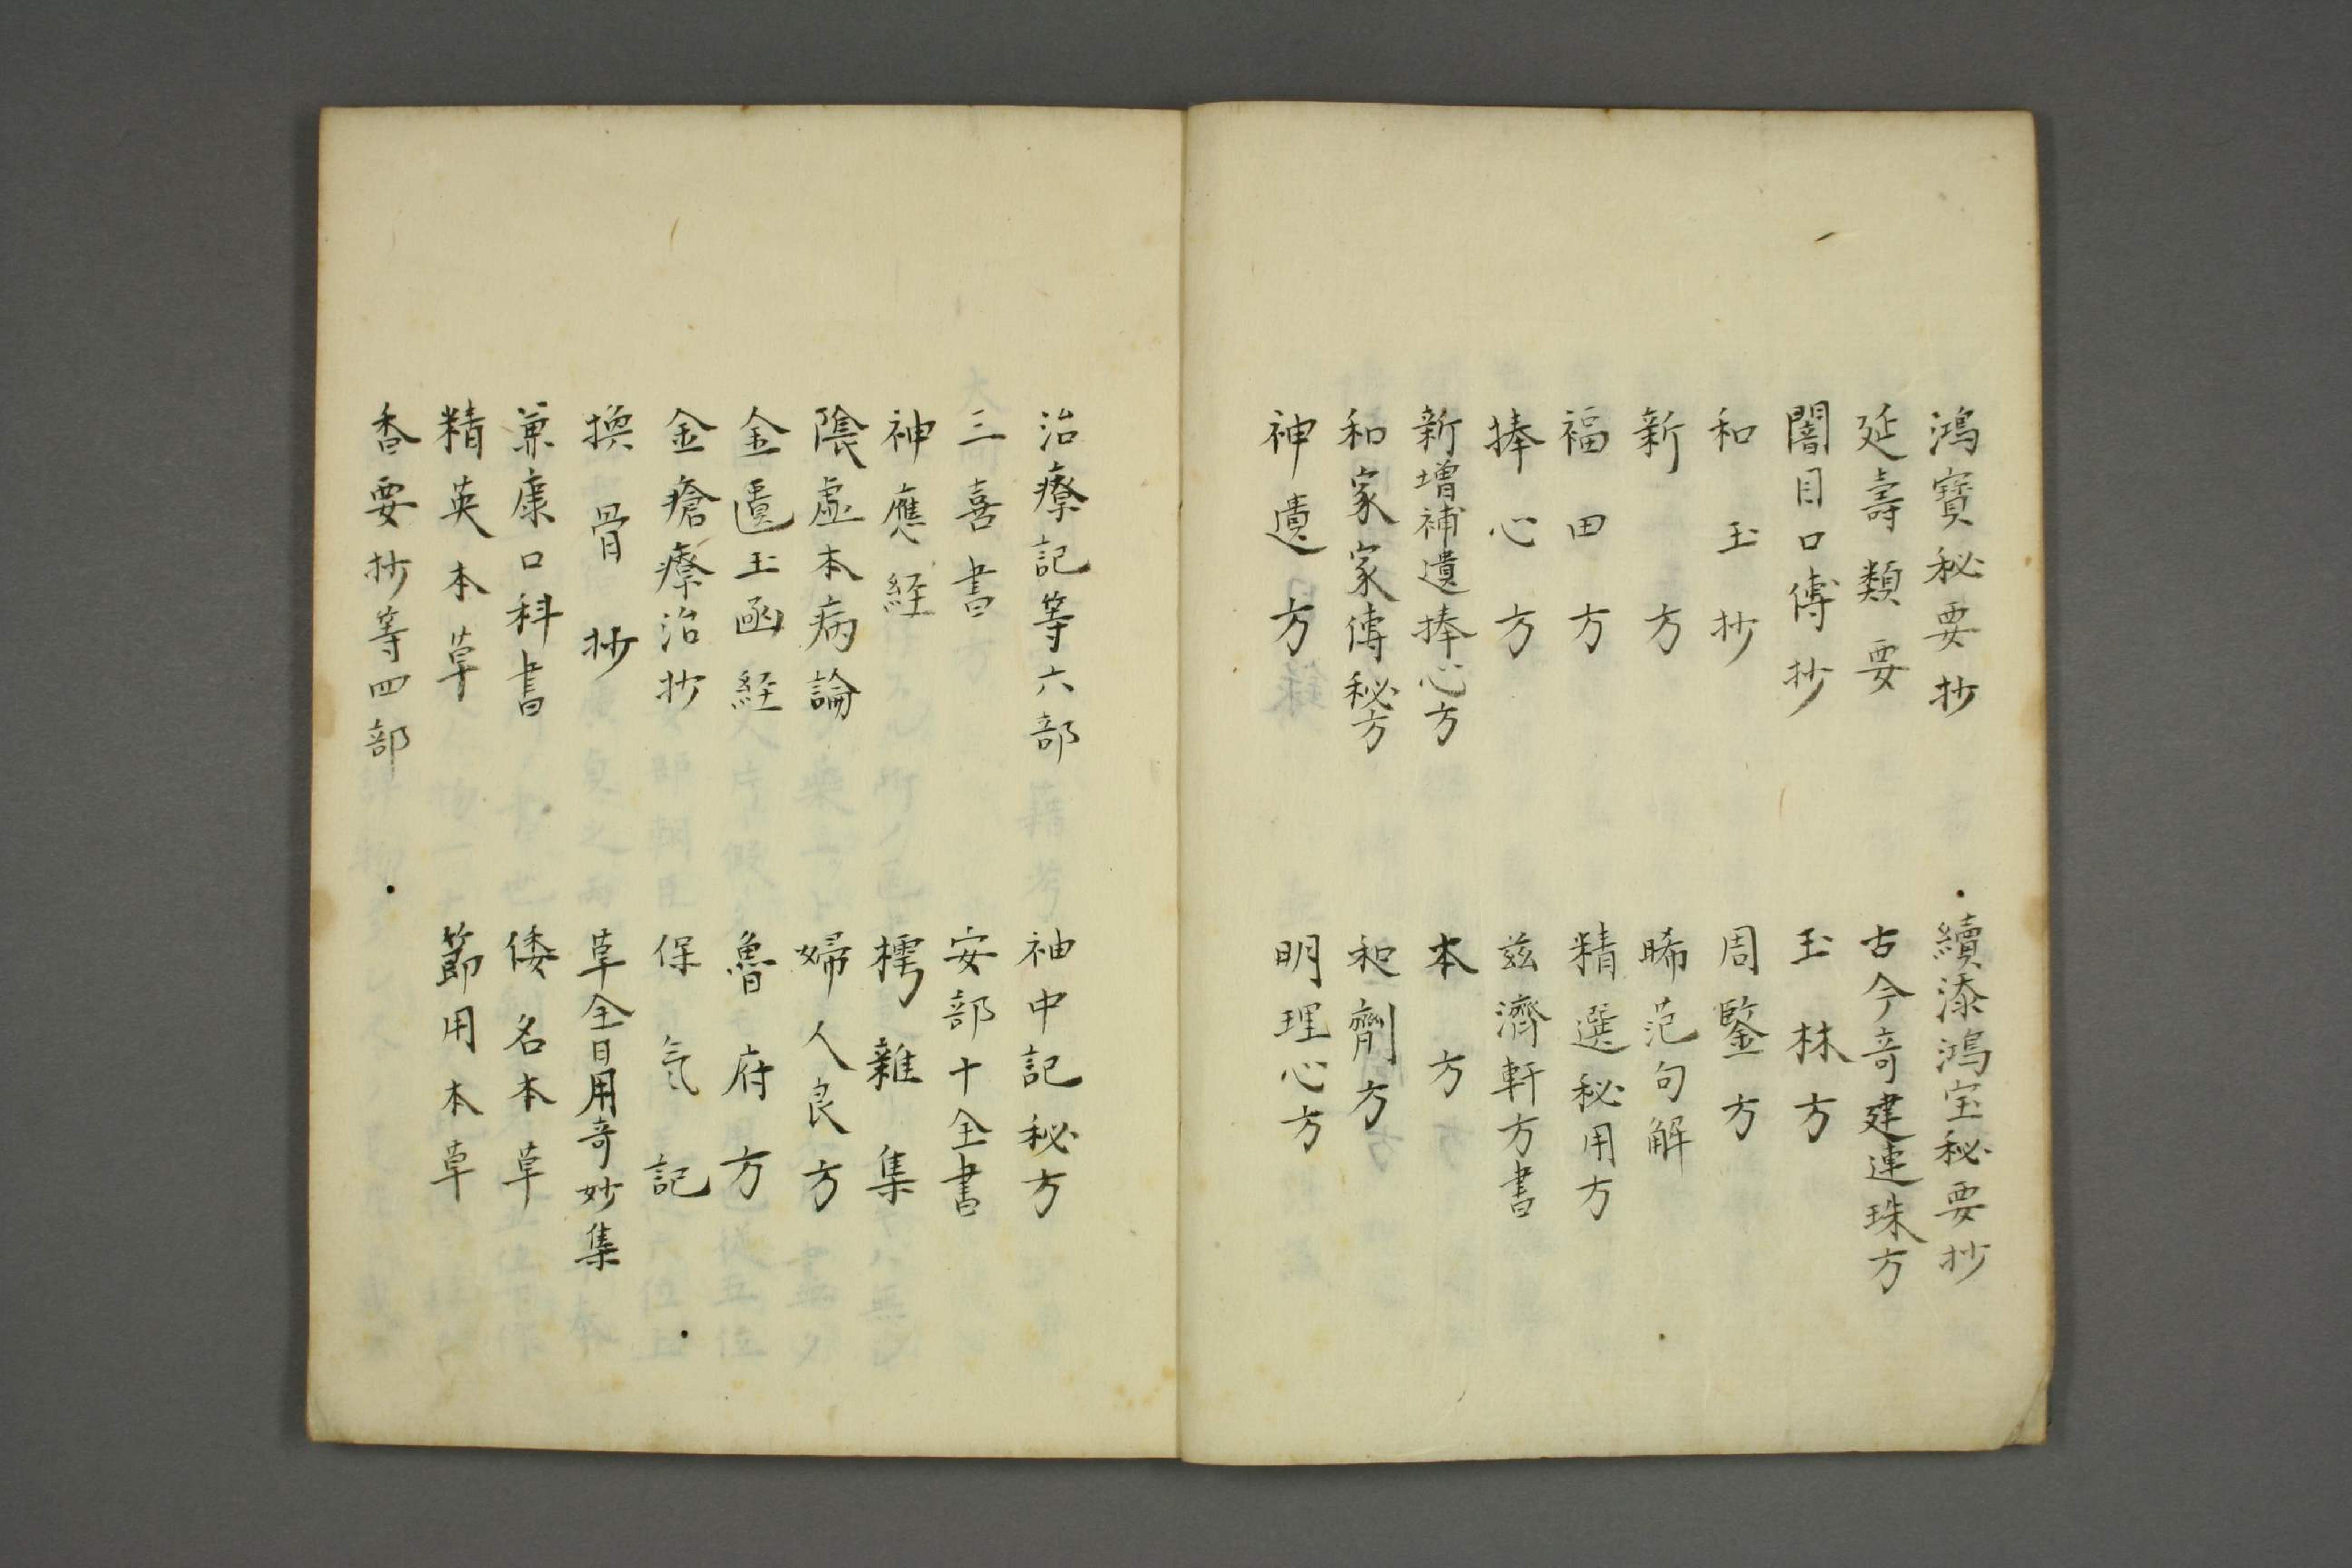 鴻寶秘要抄
續添鴻宝秘要抄
延壽類要
古今奇建連珠方
闇目口傳抄
玉林方
和玉抄
周鑒方
新方
晞范句解
福田方
精選秘用方
捧心方
茲濟軒方書
新增補遺捧心方
本方
和家家傳秘方
和劑方
神遺方
明理心方
治療記等六部
袖中記秘方
三喜書
安部十全書
神應経
樗雜集
陰虚本病論
婦人良方
金匱玉函経
魯府方
金瘡療治抄
保氣記
換骨抄
草全日用奇妙集
兼康口科書
倭名本草
精英本草
節用本草
香要抄等四部